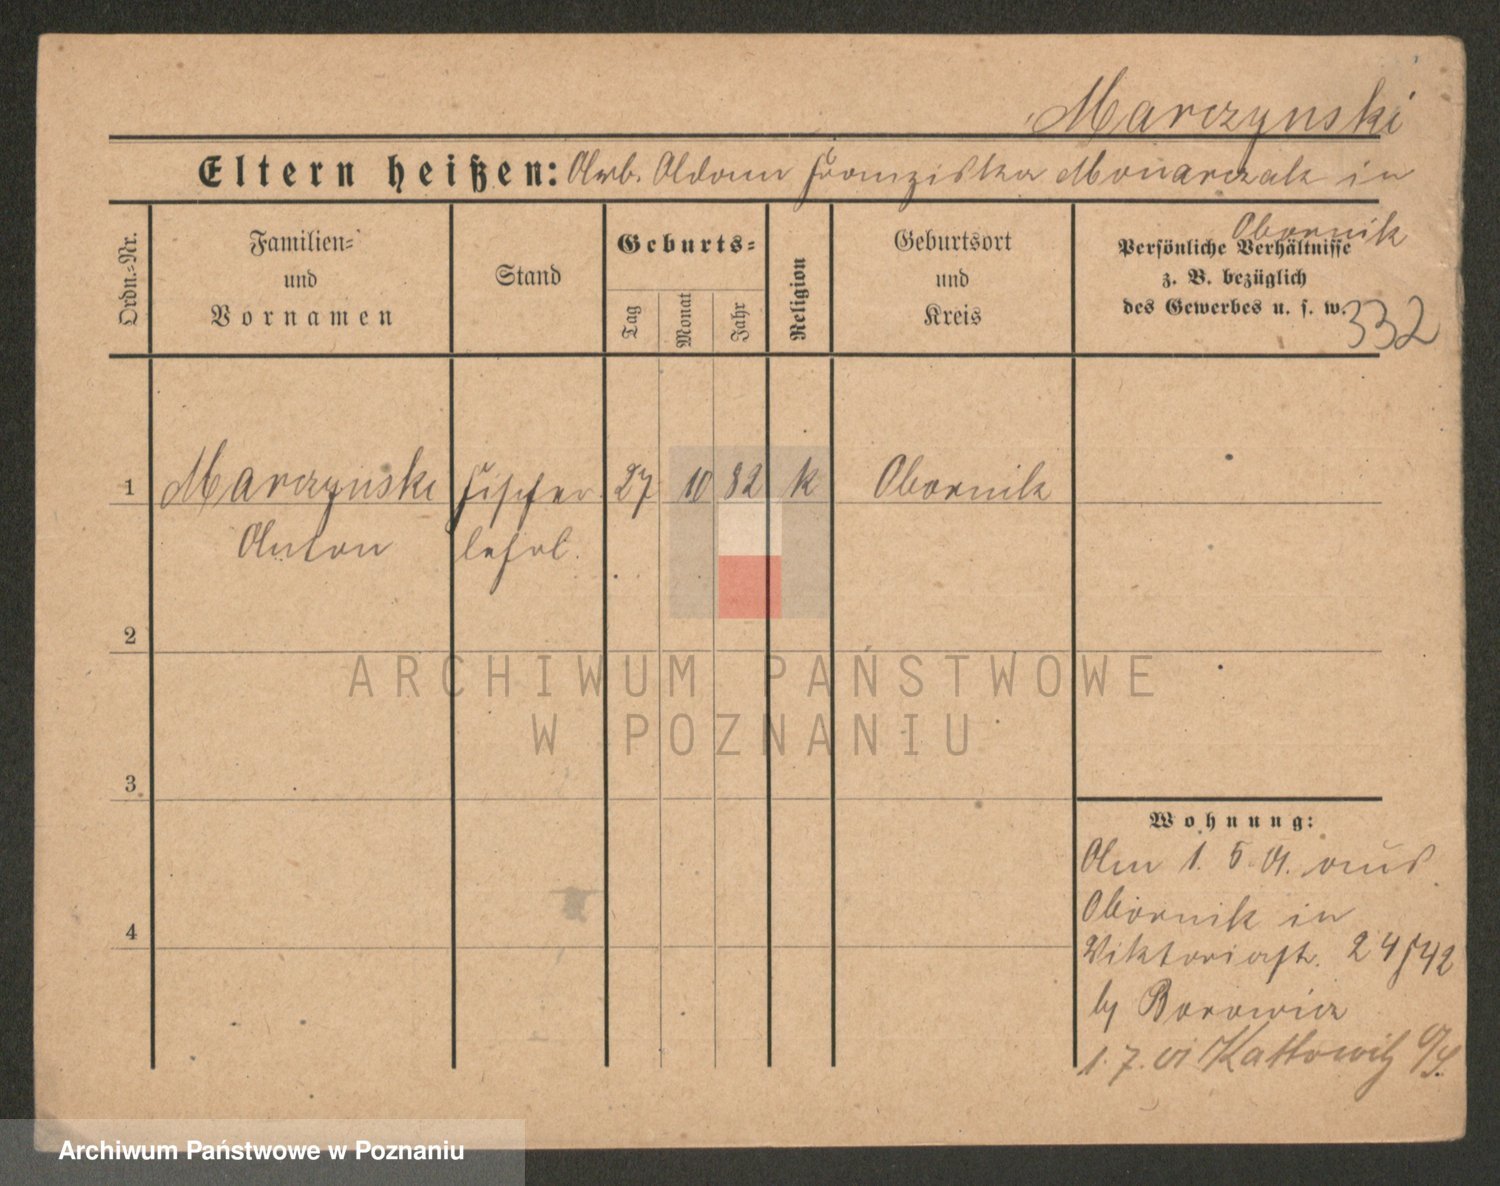 Marczynski
Eltern heißen: Arb. Adam Franziska Monarczak in
Obornik
Ordn.-Nr.
Familien-
und
Vornamen
Stand
Geburts-
Tag
Monat
Jahr
Religion
Geburtsort
und
Kreis
Persönliche Verhältnisse
z. B. bezüglich
des Gewerbes u. s. w.
332
1
Marczynski Fischer 27 10 82 k Obornik
Anton lehrl.
2
3
4
Wohnung:
Am 1. 5. 01. aus
Obornik in
Viktoriastr. 24/42
by Borowicz
1. 7. 01 Kattowitz O/S.
ARCHIWUM PAŃSTWOWE
W POZNANIU
Archiwum Państwowe w Poznaniu